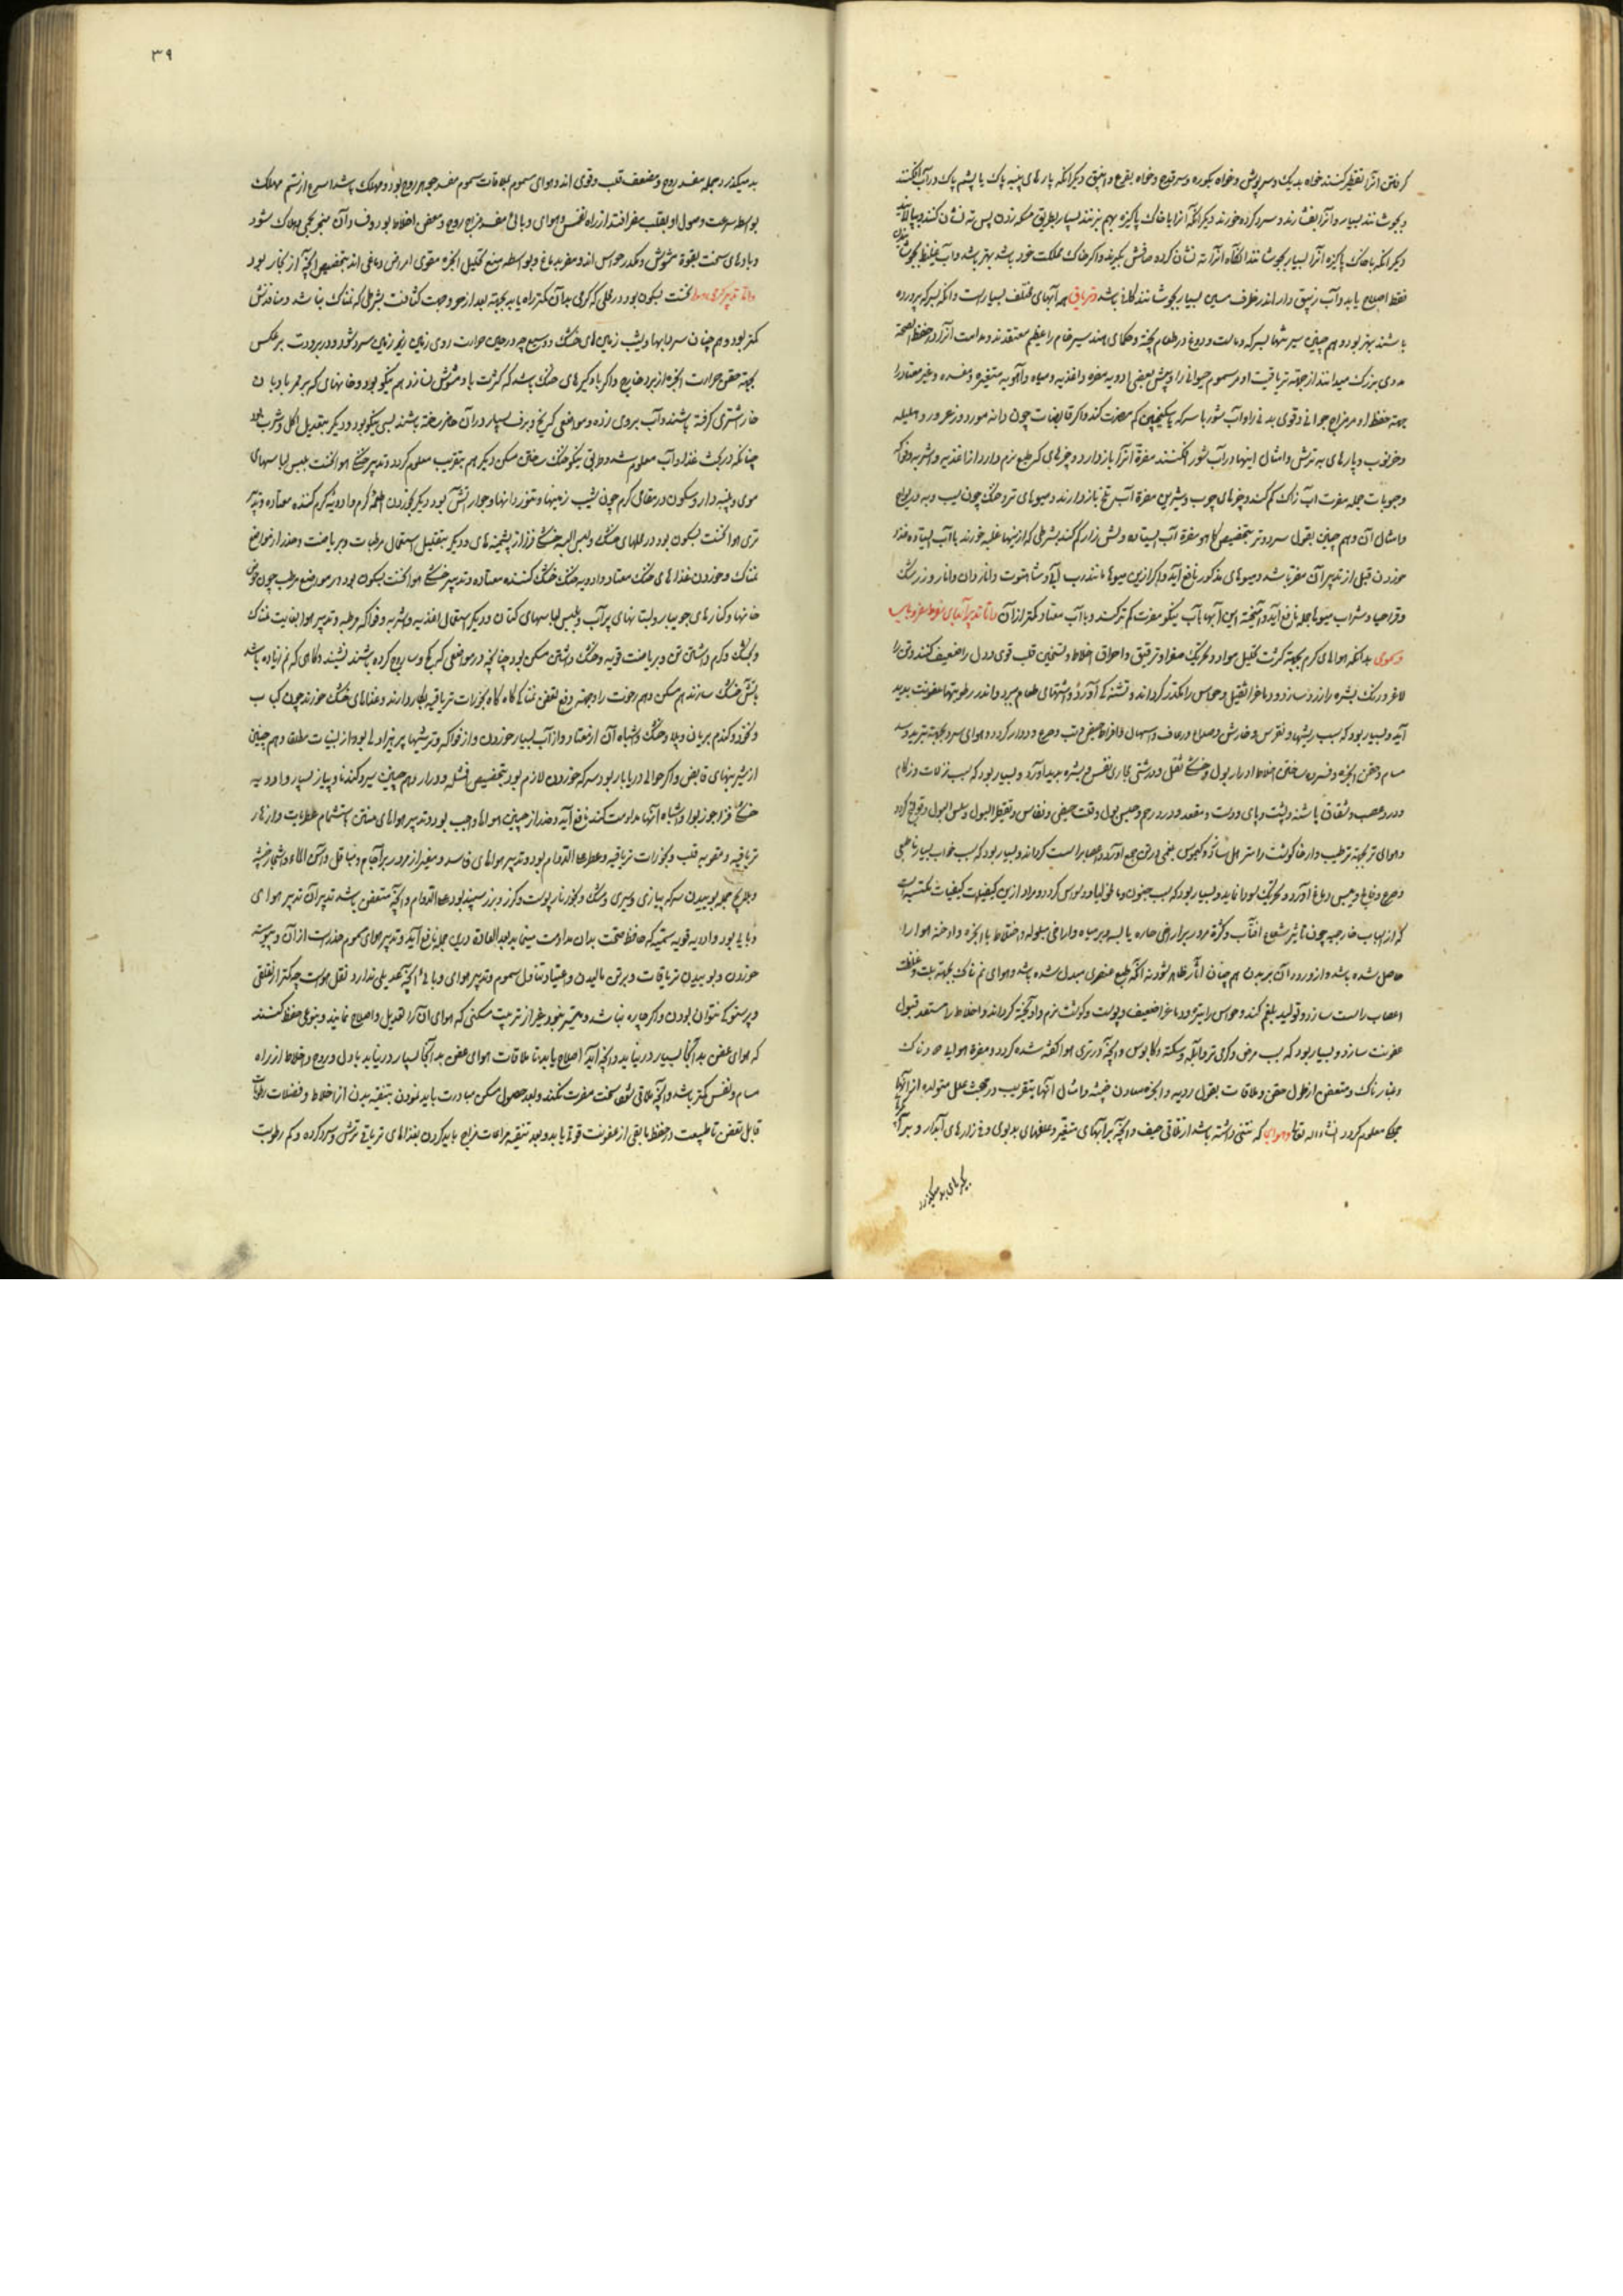 کرفتن انرا تقطیر کنند خواه بدیک و سرپوش و خواه بکوره و سر قدح و خواه بقرع و انبیق دیکر آنکه پارهای پنبه پاک یا پشم پاک در آب افکنند
و بجوشانند بسیار و آنرا بفشارند و سرد کرده خورند دیکر آنکه آنرا با خاک پاکیزه بهم بزنند بسیار بطریق مسکه زدن پس ته نشان کنند و بپالایند
دیکر آنکه با خاک پاکیزه آنرا بسیار بجوشانند آنکاه آنرا ته نشان کرده صافش بکیرند و اکر خاک مملکت خود باشد بهتر باشد و آب غلیظ بجوشانیدن
فقط اصلاح یابد و آب زیبق دار اندر ظرف مسین بسیار بجوشانند کافی باشد و تریاق همه آبهای مختلف بسیارست و انکور بسرکه پرورده
باشند بهتر بود و هم چنین سیر تنها بسرکه و ماست و دوغ در طعام پخته و حکمای هند سیر خام را عظیم معتقدند و مداومت آنرا در حفظ الصحة
مدوی بزرک میدانند از جهة تریاقیت او مر سموم حیوانی را و پیش بعضی ادویه مضره و اغذیه و میاه و آهویه متغیره و مفسده و غیر معتاد را
جهة حفظ او مر مزاج حیوانی و قوی بدنی را و آب شور با سرکه یا سکنجبین کم مضرت کند و اکر قابضات چون دانه مورد و زعرور و هلیله
و خرنوب و پارهای به ترش و امثال اینها در آب شور افکنند مضرة انرا باز دارد و چیزهای که طبع نرم دارد از اغذیه و اشربه و فواکه
و حبوبات جمله مضرت آب زاک کم کند و چیزهای چوب و شیرین مضرة آب تلخ باز دارند و میوهای تر و خنک چون سیب و به و ریواج
و امثال آن و هم چنین بقول سرد و تر بتخصیص کاهو مضرة آب ایستاده و نیش زار کم کند بشرطی که از نیها غلبه خورند با آب ایستاده غذا
خوردن قبل از تدبیر آن مضر باشد و میوهای مذکور نافع آید و اکر ازین میوها مانند رب آبی و شاهتوت و انار دان و انار و زرشک
و قراصیا و شراب میوها جمله نافع آید و آمیخته این آبها با آب نیکو مضرت کم تر کند و با آب معتاد کمتر از آن و اما تدبیر آهویهای مفرط مضر و وبایی
و سموی بدانکه هواهای کرم بجهة کثرت تحلیل مواد و تحریک صفرا و ترقیق و احراق اخلاط و تسخین قلب قوی و دل را ضعیف کنند و تن را
لاغر و رنک بشره را زرد سازد و دماغ را ثقیل و حواس را مکدر کرداند و تشنکی آورد و اشتهای طعام ببرد و اندر رطوبتها عفونت پدید
آید و بسیار بود که سبب ریشها و نقرس و خارش و صداع و رعاف و اسهال و افراط حیض و تب و صرع و دوار کردد و هوای سرد بجهة تبرید و سد
مسام و حقن ابخره و فسردن ساختن اخلاط ادرار بول و خشکی ثقل و درشتی مجاری نفس و بشره پدید آورد و بسیار بود که سبب نزلات و زکام
و درد عصب و شقاق پاشنه و پشت و پای و دست و مقعد و درد رحم و حبس بول وقت حیض و نفاس و تقطیر البول و سلس البول و قولنج کردد
و هوای تر بجهة ترطیب و ارخا کوشت را سترهل سازد و کیموس بلغمی در تن جمع آورد و اعصاب را سست کرداند و بسیار بود که سبب خواب بسیار ناطبیعی
و صرع و فالج و یبس دماغ آورد و تحریک سودا نماید و بسیار بود که سبب جنون و مالیخولیا و وسواس کردد و مراد ازین کیفیات کیفیات مکتسبه است
که از اسباب خارجیه چون تاثیر شعاع افتاب و کثرة مرور بر اراضی حاره یا یابسه و بر میاه و اراضی مبلوله و اختلاط با ابخره و ادخنه هوا را
حاصل شده باشد و از ورود آن بر بدن هم چنان آثار ظاهر شود نه آنکه طبع عنصری مبدل شده باشد و هوای نم ناک بجهة بلت و غلظت
اعصاب را سست سازد و تولید بلغم کند و حواس را تیره و دماغ را ضعیف و پوست و کوشت نرم و آویخته کرداند و اخلاط را مستعد قبول
عفونت سازد و بسیار بود که سبب مرض و کرمی تر و آبله و سکته و کابوس و انچه در تری هوا کفته شده کردد و مضرة هوای دخانی
و غبارناک و متعفن از طول حقن و ملاقات بقول ردیه و ابخره معادن خبیثه و امثال آنها بتقریب در بحث علل متولده از آنها
بجای معلوم کردد انشاء الله تعالی و هوای که نتنی داشته باشد از تلاقی جیف و انچه بر آبهای متغیر و علفهای بدبوی و نی زارهای آبدار و بر آبکیرهای
بکیرهای بد میکذرد
۳۹
بد میکذرد جمله مفسد روح و مضعف قلب و قوی اند و هوای سموم بملاقات سموم مفسد جوهر روح بود و مهلک باشد اسرع از سم مهلک
بواسطه سرعت وصول او بقلب مغرافتد از راه نفس و هوای وبائی مفسد مزاج روح و معفن اخلاط بود و ف و آن منجر بمرض هلاک شود
و بادهای سخت بقوة مشوش و مکدر حواس اند و مضر بدماغ و بواسطه منع تحلیل ابخره مقوی امراض دماغی اند بتخصیص انچه از بخار بود
و اما تدبیر کرمی هوا نخست بسکون بود در محلی که کرمی بدان کمتر راه یابد بجهة بعد از حر و جهت کثافت بشرطی که نمناک نباشد و منافذش
کمتر بود و هم چنان سردابها و بشیب زمین های خنک و وسیع چه در حین حرارت روی زمین زیر زمین سرد شود و در برودت برعکس
بجهة حقن حرارت ابخره از برد خارج و اکر بادکیرهای خنک باشد که کثرت باد مشوش نسازد هم نیکو بود و خانهای که بر ممر باد باد
خار اشتری کرفته باشند و آب بر وی زده و مواضعی که یخ و برف بسیار در آن حاضر ساخته باشند بسی نیکو بود و دیکر بتعدیل اکل و شرب بود
چنانکه در بحث غذا و آب معلوم شد و طرایق نیکو خنک ساختن مسکن دیکر هم بتقریب معلوم کردد و تدبیر خنکی هوا نخست بلبس لباسهای
موی و پنبه دار و سکون در مقامی کرم چون شیب زمینها و تنوردانها و جوار آتش بود دیکر بخوردن اطعمه کرم و ادویه کرم کننده معتاده و تدبیر
تری هوا نخست بسکون بود در محلهای خنک و لبس البسه خشکی فزا از پشمینهای و دیکر بتقلیل استعمال مرطبات و بریاضت و حذر از مواضع
نمناک و خوردن غذاهای خنک معتاد و ادویه خنک خشک کننده معتاده و تدبیر خشکی هوا نخست بسکون بود در مواضع مرطب چون حوض
خانها و کنارهای جویبار و بستانهای پر آب و بلبس لباسهای کتان و دیکر بتقال اغذیه و اشربه و فواکه مرطبه و تدبیر هوا بغایت نمناک
و خنک و کرم داشتن تن و بریاضت قویه و خشک داشتن مسکن بود چنانچه در مواضعی که کچ و ساروج کرده باشند نشیند و کاهی که نم زیاده باشد
باتش خشک سازند هم مسکن و هم رخوت را و جهة دفع تعفن نمناکی کاه کاه بخورات تریاقیه بکار دارند و غذاهای خشک خورند چون کباب
و نخود و کندم بریان و پلاو خشک و اشباه آن از معتاد و از آب بسیار خوردن و از فواکه و ترشیها پرهیز اولی بود از لبنیات مطلقا و هم چنین
از شیرینهای قابض و اکر حوالی دریابار بود سرکه خوردن لازم بود بتخصیص فسل و ودرار و هم چنین سیر و کندنا و پیاز بسیار و ادویه
خشکی فزا جوزبوا و اشباه آنها مداومت کنند نافع آید و حذر از چنین هواها واجب بود و تدبیر هواهای منتن استشمام عطریات و ازهار
تریاقیه و مقویه قلب و بخورات تریاقیه و عطرها علی الدوام بود و تدبیر هواهای فاسد و متغیر از مرور بر آجام و مباقل و آسن الماء و اشجار خبیثه
و بطایح جمله بوییدن سرکه پیازی و سیری و مشک و بخور نار پوست و کزر و برزسپند بود علی الدوام و انچه متعفن باشد تدبیر آن تدبیر هوای
وبایی بود و ادویه قویه سمیه که حافظ صحت بدان مداومت مینماید بعد العادة درین جمله نافع آید و تدبیر هوای سموم حذرست از آن و پیوسته
خوردن و بوییدن تریاقات و بر تن مالیدن و اعتیاد تناول سموم و تدبیر هوای وبائی انچه بهدیلی ندارد نقل هواست چه کمتر از نقلقی
و پرستوکی نتوان بودن و اکر چاره نباشد و میسر نبود و غیر از ترتیب مسکنی که هوای آن را تعدیل و اصلاح نمایند و بنوعی حفظ کنند
که هوای عفن به آنجا بسیار در نیاید و انچه آید اصلاح یابد تا ملاقات هوای عفن به آنجا بسیار در نیاید بدل و روح و اخلاط از راه
مسام و نفس کمتر باشد و انچه ملاقی شود سخت مضرت نکند و بعد حصول مسکن مبادرت باید نمودن بتنقیه بدن از اخلاط و فضلات رطوبات
قابل تعفن تا طبیعت در حفظ مابقی از عفونت قوت یابد و بعد تنقیه مراعات مزاج باید کردن بغذاهای تریاقی ترش و سرد کرده و کم رطوبت